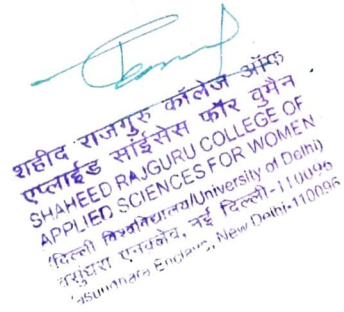 शहीद राजगुरु कॉलेज ऑफ
एप्लाईड साईंसेस फॉर वुमैन
SHAHEED RAJGURU COLLEGE OF
APPLIED SCIENCES FOR WOMEN
(दिल्ली विश्वविद्यालय/University of Delhi)
वसुंधरा एनक्लेव, नई दिल्ली-110096
Enclave, New Delhi-110096